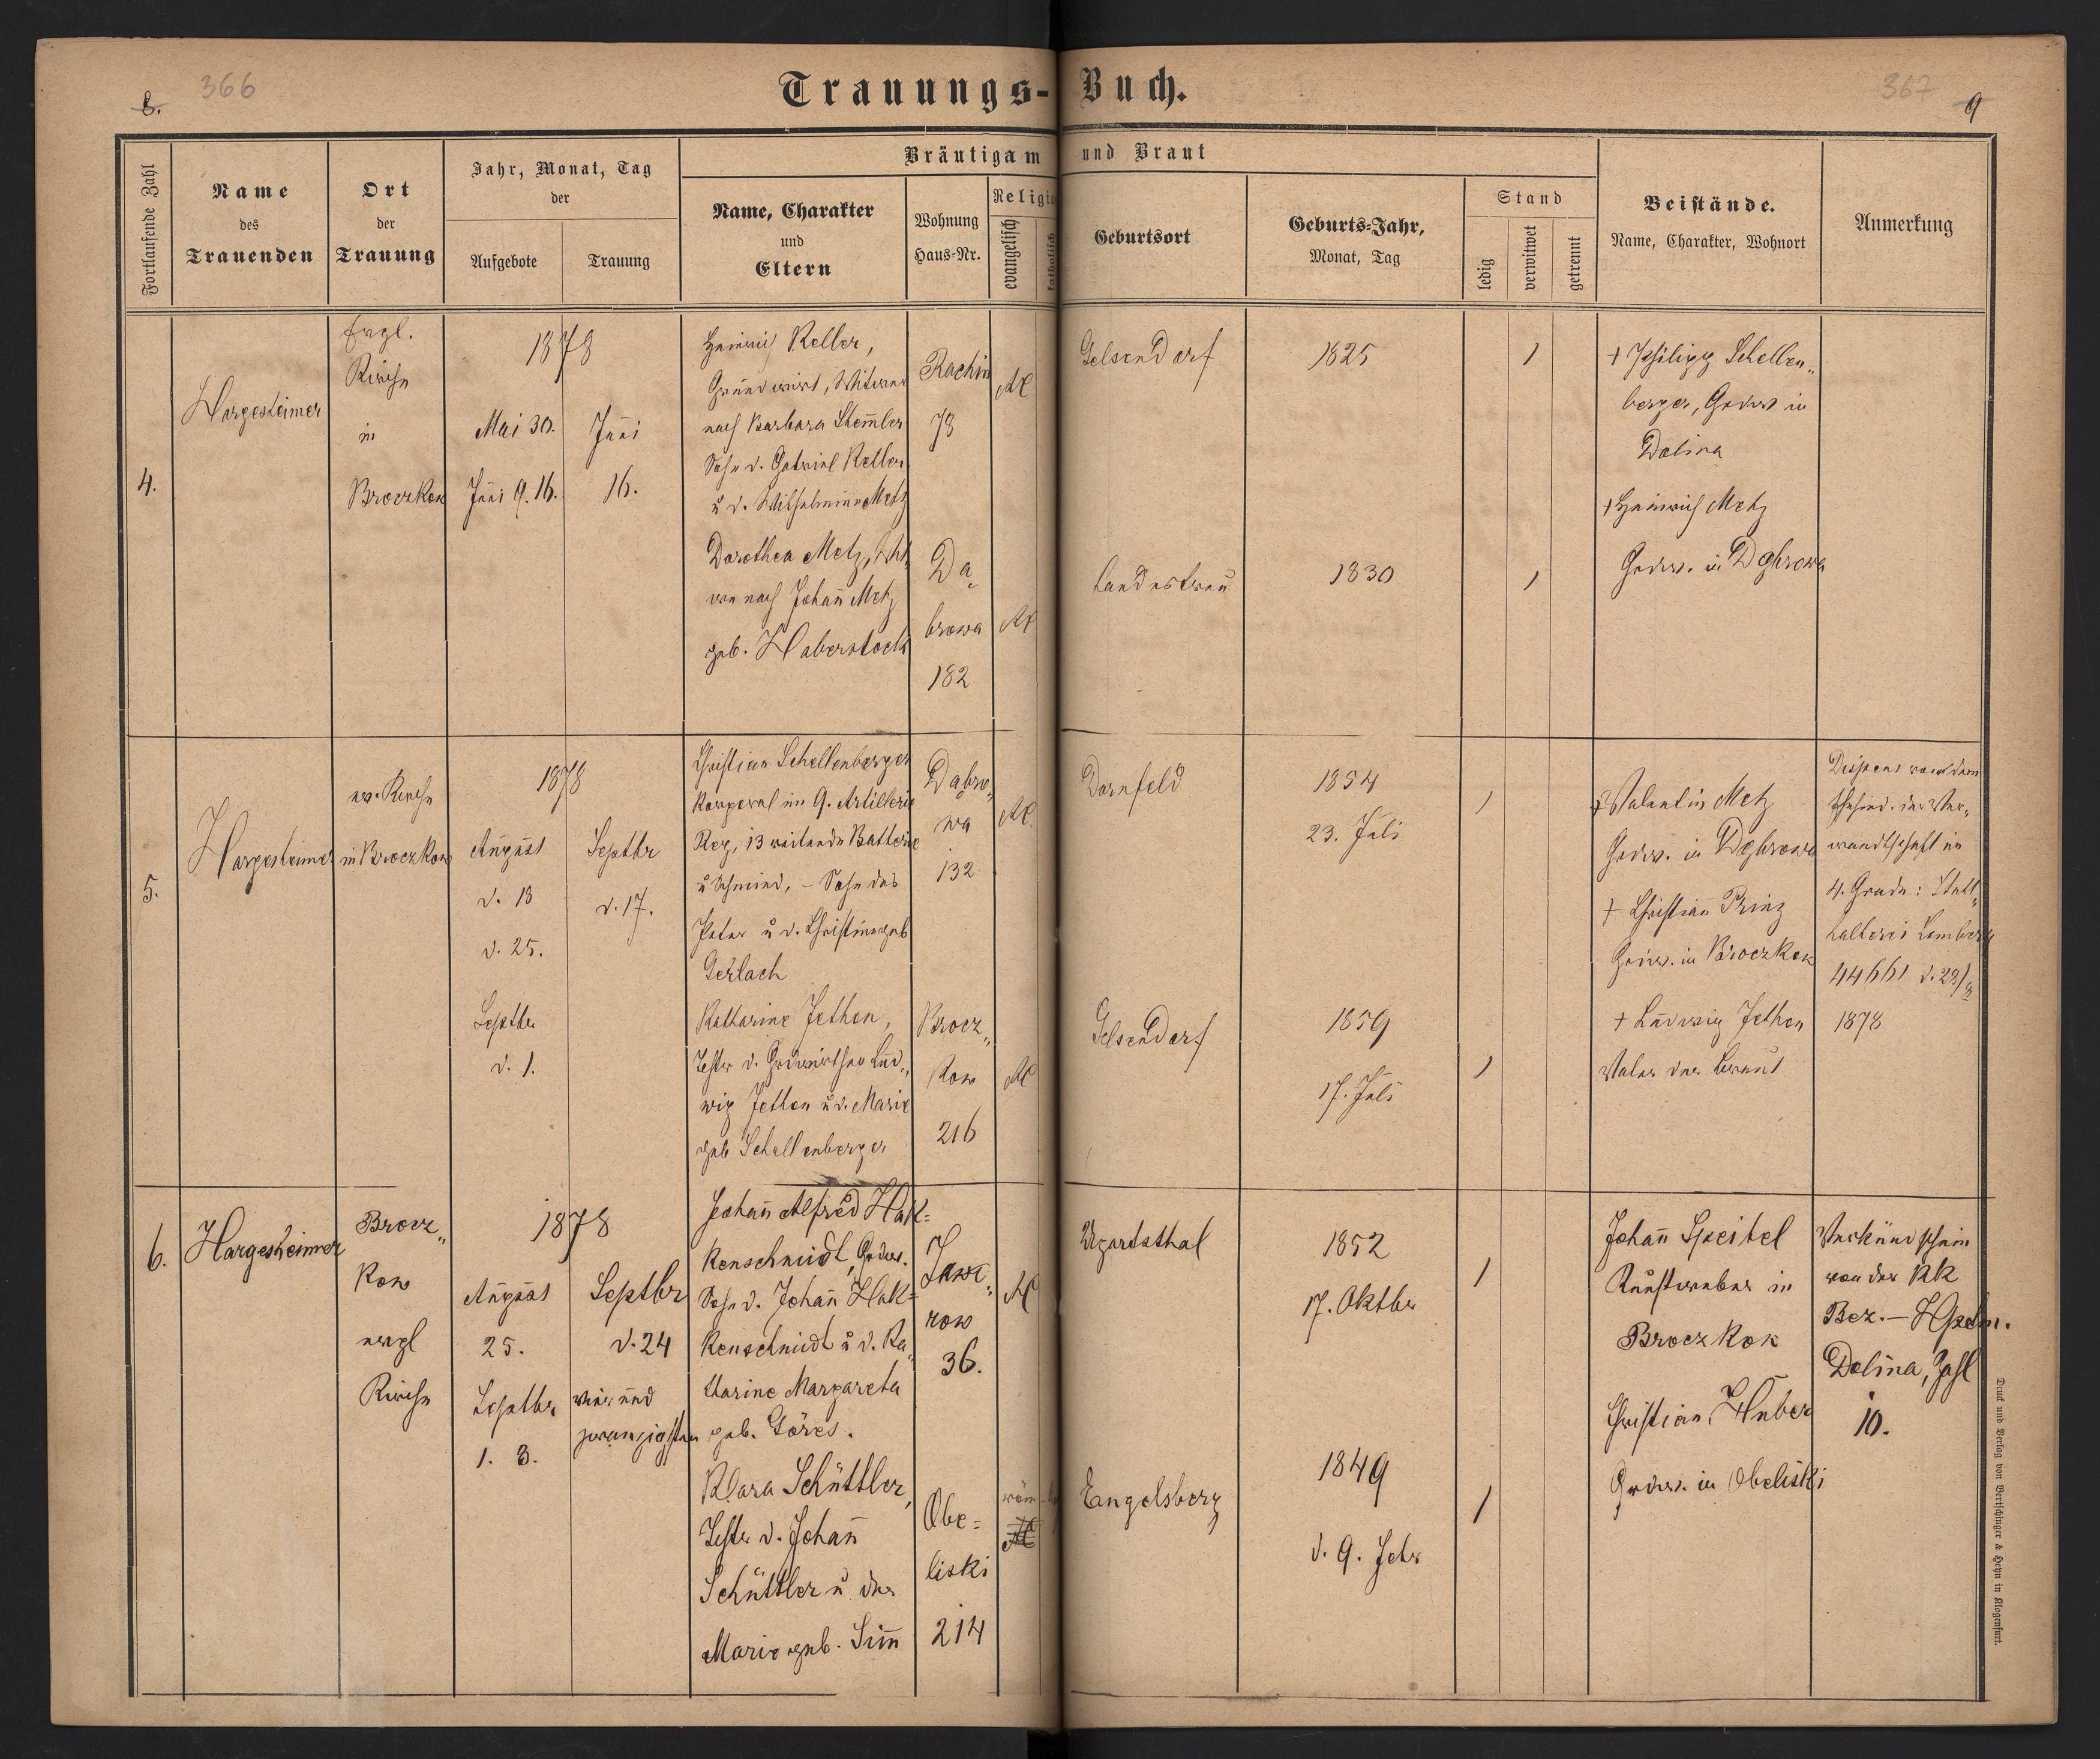 366
8.
Trauungs-Buch.
367
9
Fortlaufende Zahl
Name
des
Trauenden
Ort
der
Trauung
Jahr, Monat, Tag
der
Aufgebote
Trauung
Bräutigam und Braut
Name, Charakter
und
Eltern
Wohnung
Haus-Nr.
Religi
evangelisch
katholisch
Geburtsort
Geburts-Jahr,
Monat, Tag
Stand
ledig
verwitwet
getrennt
Beistände.
Name, Charakter, Wohnort
Anmerkung
4.
Hargesheimer
Evgl.
Kirche
in
Broczkow
1878
Mai 30.
Juni 9. 16.
Juni
16.
Heinrich Keller,
Grundwirt, Witwer
nach Barbara Stemler
Sohn d. Gabriel Keller
u d. Wilhelmine Metz
Rachin
78
AC
Gelsendorf
1825
1
Dorothea Metz, Wit
we nach Johann Metz
geb. Haberstock
Da
browa
182
AC
Landestreu
1830
1
+ Philipp Schellen„
berger, Grdw in
Dolina
+ Heinrich Metz
Grdw. in Dąbrowa
5.
Hargesheimer
ev. Kirche
in Broczkow
1878
August
d. 18
d. 25.
Septbr
d. 1.
Septbr
d. 17.
Christian Schellenberger
Korporal im 9. Artillerie
Reg, 13 Batterie
u Schmied, – Sohn des
Peter u d. Christine geb
Gerlach
Dąbro„
wa
132
AC
Dornfeld
1854
23. Juli
1
Katharine Jethon,
Tochter d. Grdwirthes Lud„
wig Jethon u d. Marie
geb Schellenberger
Brocz„
kow
216
AC
Gelsendorf
1859
17. Juli
1
+ Valentin Metz
Grdw. in Dąbrowa
+ Christian Prinz
Grdw. in Broczkow
+ Ludwig Jethon
Vater der Braut
Dispens von dem
Ehehind. der Ver„
wandtschaft im
4. Grade: Statt„
halterei Lemberg
44661 d. 28/8
1878
6.
Hargesheimer
Brocz„
kow
evgl
Kirche
1878
August
25.
Septbr
1. 8.
Septbr
d. 24
vier und
zwanzigsten
Johann Alfred Hak=
kenschmidt, Grdw.
Sohn d. Johann Hak=
kenschmidt u d. Ka„
tharine Margareta
geb. Göres.
Jawo„
row
36.
AC
Ugartsthal
1852
17. Oktbr
1
Klara Schüttler,
Tochter d. Johann
Schüttler u der
Marie geb. Simm
Obe=
liski
214
röm
AC
Engelsberg
1849
d. 9. Febr
1
Johann Speitel
Kunstweber in
Broczkow
Christian Huber
Grdw. in Obeliski
Verkündschein
von der KK
Bez.–Hptm.
Dolina, Zahl
10.
Druck und Verlag von Bertschinger & Heyn in Klagenfurt.